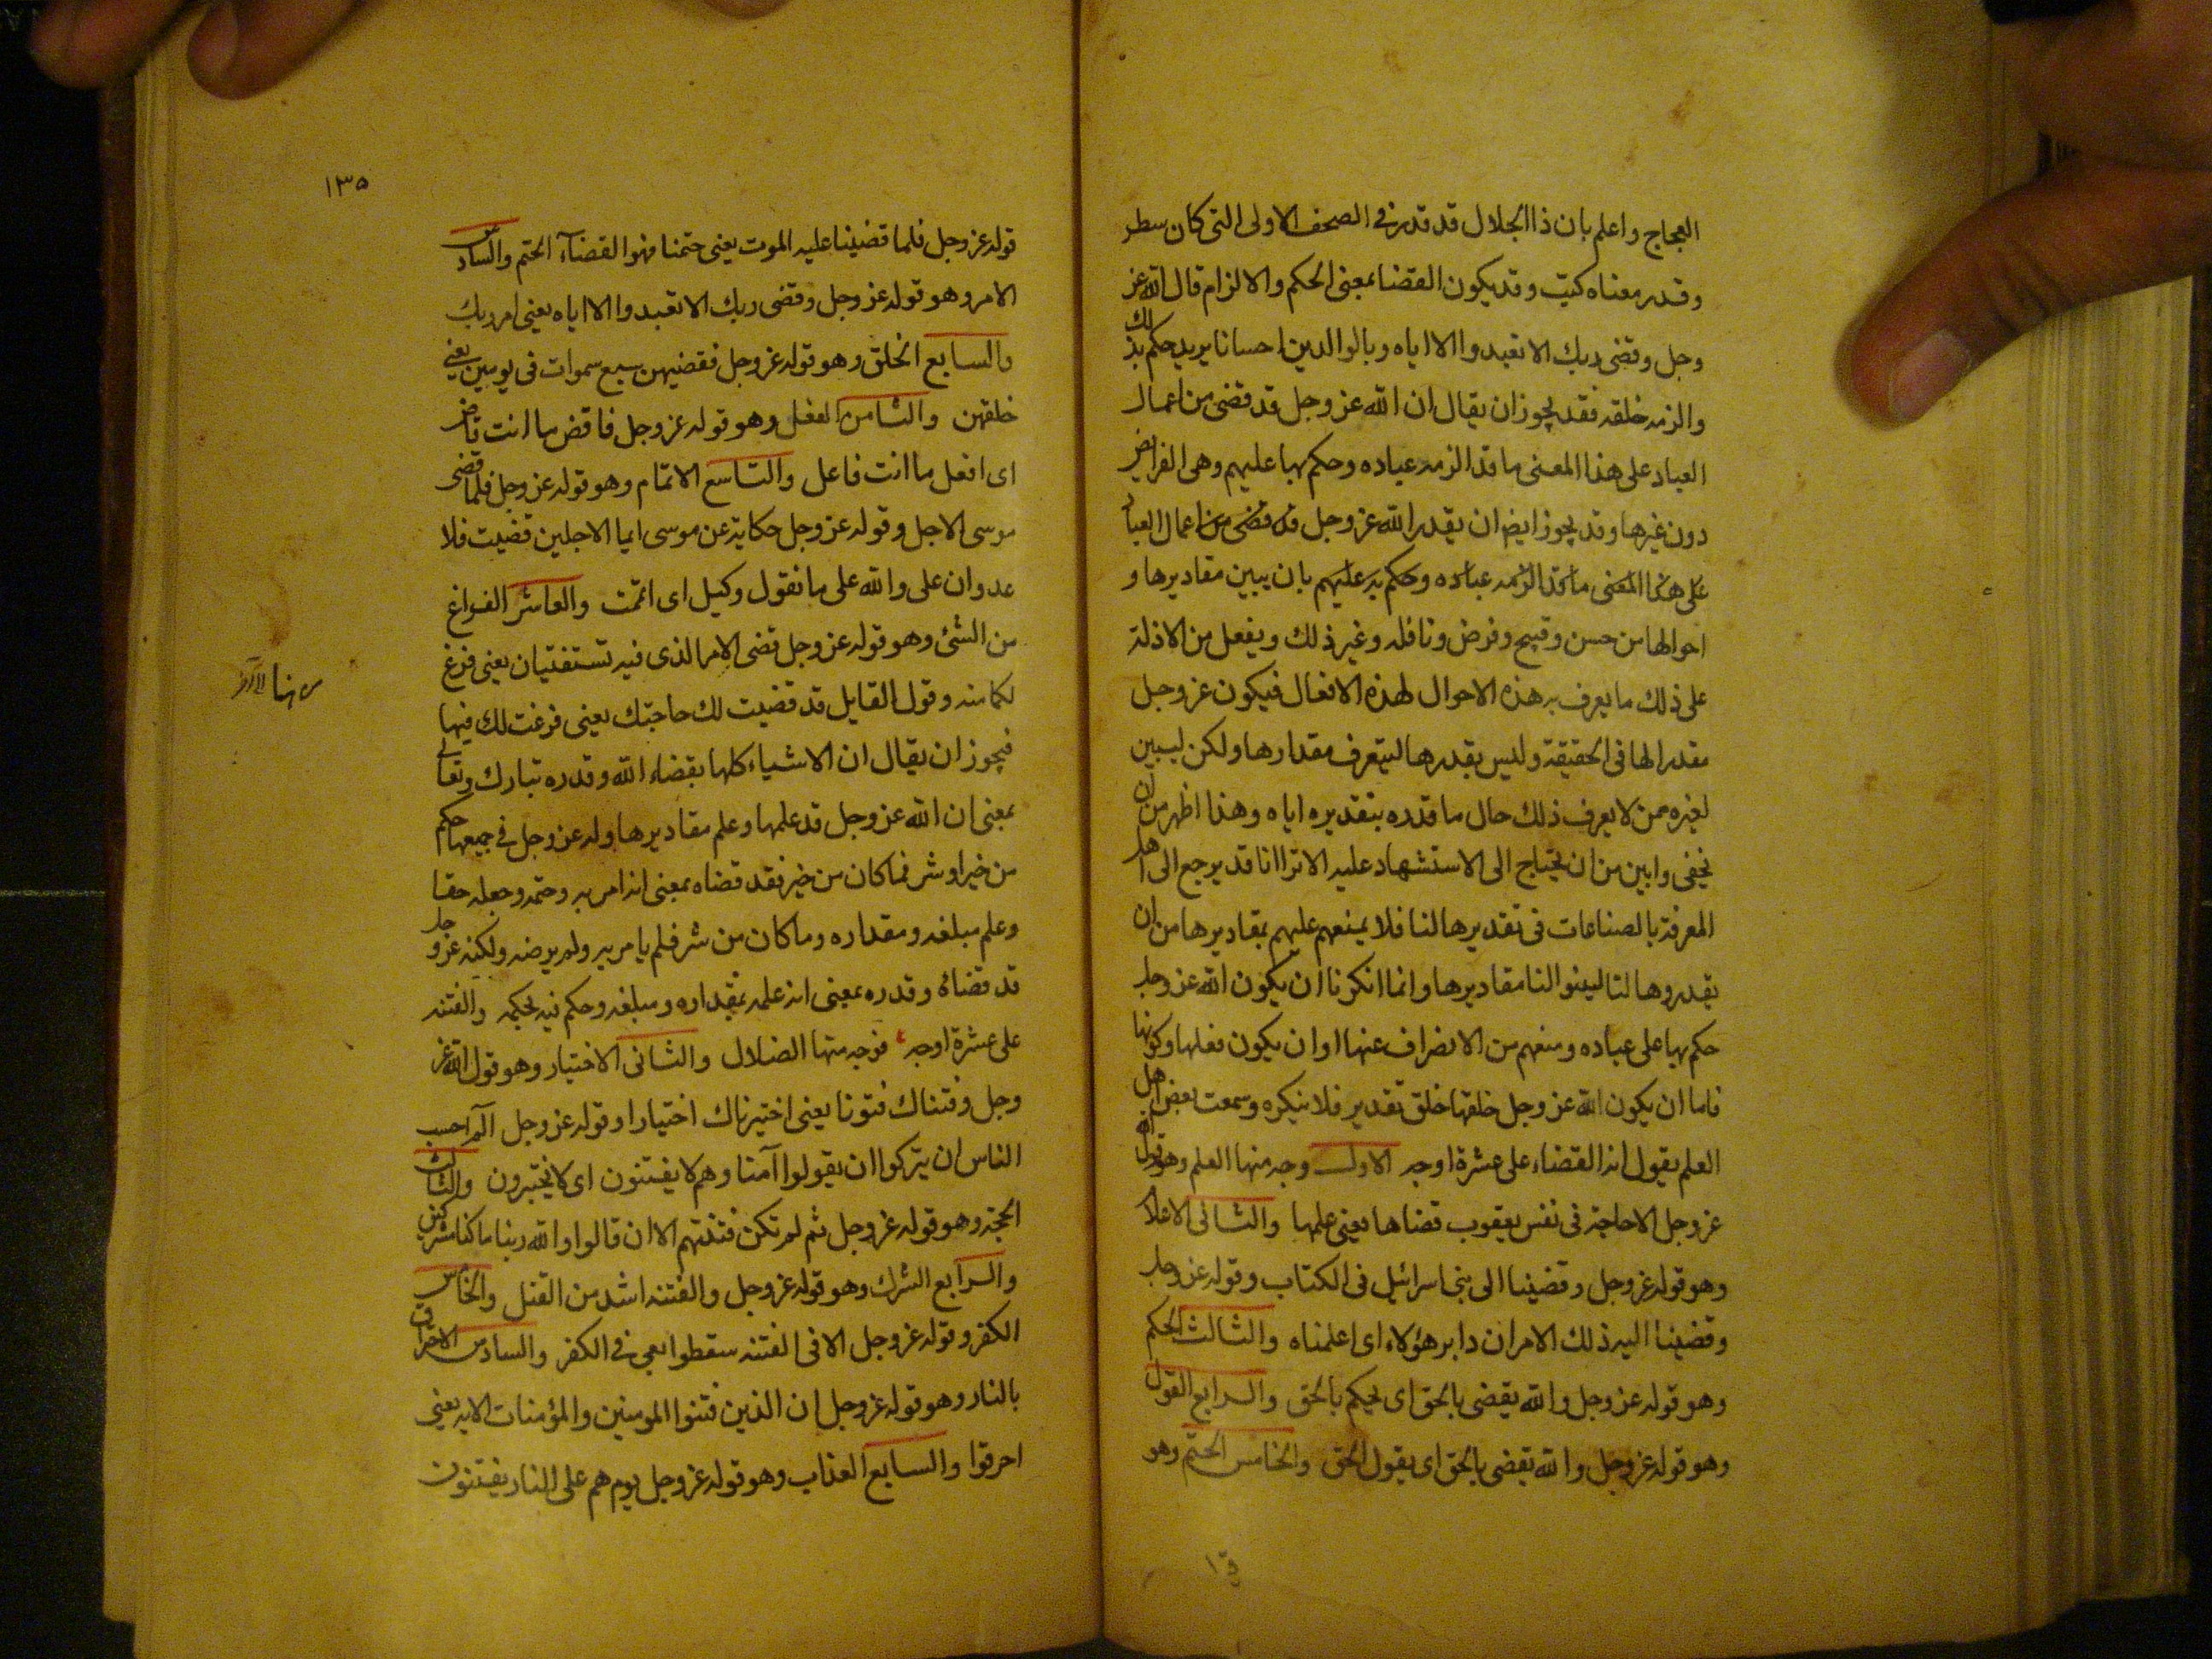 العجاج واعلم بان ذا الجلال قد قدر في الصحف الاولى التى كان سطر
وقدر معناه كتب وقد يكون القضا بمعنى الحكم والالزام قال الله عز
وجل وقضى ربك الا تعبدوا الا اياه وبالوالدين احسانا يريد حكم بذلك
والزمه خلقه فقد يجوز ان يقال ان الله عز وجل قد قضى من اعمال
العباد على هذا المعنى ما قد الزمه عباده وحكم بها عليهم وهى الفرايض
دون غيرها وقد يجوز ايضا ان يقدر الله عز وجل قد قضى من اعمال العباد
على هذا المعنى ما قد الزمه عباده وحكم به عليهم بان يبين مقاديرها و
احوالها من حسن وقبيح وفرض ونافله وغير ذلك ويفعل من الادلة
على ذلك ما يعرف به هذه الاحوال لهذه الافعال فيكون عز وجل
مقدرا لها فى الحقيقة وليس يقدرها ليتعرف مقدارها ولكن ليبين
لغيره ممن لا يعرف ذلك حال ما قدره بتقديره اياه وهذا اظهر من ان
يخفى وابين من ان يحتاج الى الاستشهاد عليه الا ترا انا قد يرجع الى اهل
المعرفة بالصناعات فى تقديرها لنا فلا يمنعهم علمهم بمقاديرها من ان
يقدروها لنا ليبنوا لنا مقاديرها وانما انكرنا ان يكون الله عز وجل
حكم بها على عباده ومنعهم من الانصراف عنها او ان يكون فعلها وكونها
فاما ان يكون الله عز وجل خلقها خلق تقدير فلا ننكره وسمعت بعض اهل
العلم يقول ان القضاء على عشرة اوجه الاول وجه منها العلم وهو قول الله
عز وجل الا حاجة فى نفس يعقوب قضاها يعنى علمها والثانى الاعلام
وهو قوله عز وجل وقضينا الى بنى اسرائيل فى الكتاب وقوله عز وجل
وقضينا اليه ذلك الامر ان دابر هؤلاء اى اعلمناه والثالث الحكم
وهو قوله عز وجل والله يقضى بالحق اى يحكم بالحق والرابع القول
وهو قوله عز وجل والله يقضى بالحق اى يقول الحق والخامس الحتم وهو
١٣٥
قوله عز وجل فلما قضينا عليه الموت يعنى حتمنا فهو القضاء الحتم والسادس
الامر وهو قوله عز وجل وقضى ربك الا تعبدوا الا اياه يعنى امر ربك
والسابع الخلق وهو قوله عز وجل فقضيهن سبع سموات فى يومين يعنى
خلقهن والثامن الفعل وهو قوله عز وجل فاقض ما انت قاض
اى افعل ما انت فاعل والتاسع الاتمام وهو قوله عز وجل فلما قضى
موسى الاجل وقوله عز وجل حكاية عن موسى ايما الاجلين قضيت فلا
عدوان على والله على ما نقول وكيل اى اتممت والعاشر الفراغ
من الشئ وهو قوله عز وجل قضى الامر الذى فيه تستفتيان يعنى فرغ
لكما منه وقول القايل قد قضيت لك حاجتك يعنى فرغت لك فيها
فيجوز ان يقال ان الاشياء كلها بقضاء الله وقدره تبارك وتعالى
بمعنى ان الله عز وجل قد علمها وعلم مقاديرها وله عز وجل في جميعها حكم
من خير او شر فما كان من خير فقد قضاه بمعنى انه امر به وحتمه وجعله حقا
وعلم مبلغه ومقداره وما كان من شر فلم يامر به ولم يرضه ولكنه عز وجل
قد قضاه وقدره بمعنى انه علمه بمقداره ومبلغه وحكم فيه بحكمه والفتنه
على عشرة اوجه فوجه منها الضلال والثانى الاختبار وهو قول الله عز
وجل وفتناك فتونا يعنى اختبرناك اختبارا وقوله عز وجل آلم احسب
الناس ان يتركوا ان يقولوا آمنا وهم لا يفتنون اى لا يختبرون والثالث
الحجة وهو قوله عز وجل ثم لم تكن فتنتهم الا ان قالوا والله ربنا ما كنا مشركين
والرابع الشرك وهو قوله عز وجل والفتنه اشد من القتل والخامس
الكفر وقوله عز وجل الا فى الفتنه سقطوا يعنى في الكفر والسادس الاحراق
بالنار وهو قوله عز وجل ان الذين فتنوا المومنين والمؤمنات الايه يعنى
احرقوا والسابع العذاب وهو قوله عز وجل يوم هم على النار يفتنون